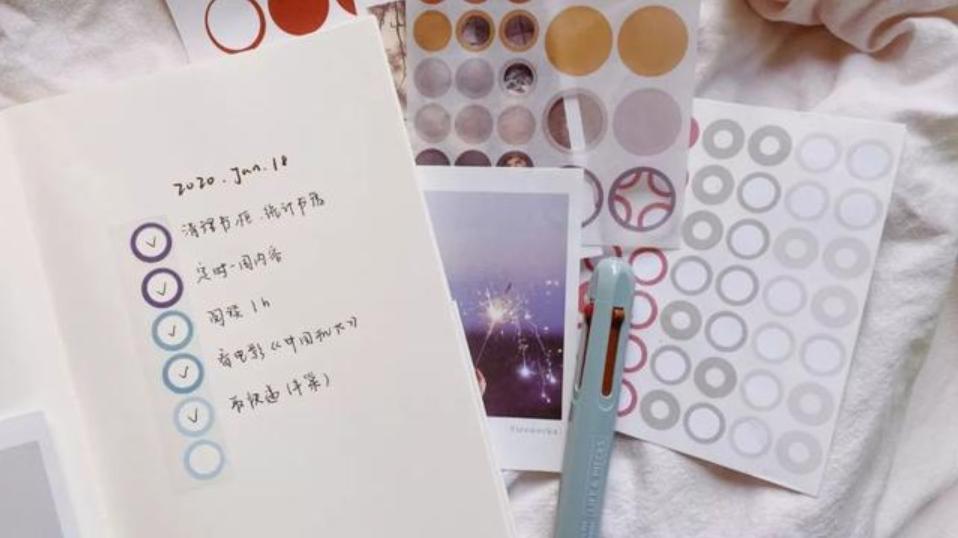 2020. Jun. 18
清理书柜.统计书籍
定时一周内容
阅读 1h
看电影《中国机长》
取快递(牛箱)
Fireworks